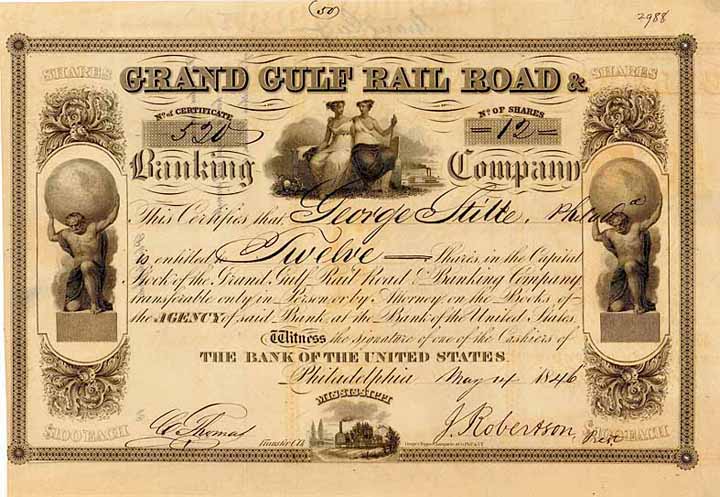 (50)
2988
SHARES SHARES
GRAND GULF RAIL ROAD &
No. of CERTIFICATE No. OF SHARES
520 -12-
Banking Company
This Certifies that George Stille, Philada
is entitled to Twelve Shares in the Capital
Stock of the Grand Gulf Rail Road & Banking Company
transferable only in Person or by Attorney on the Books of
the AGENCY of said Bank, at the Bank of the United States.
Witness the signature of one of the Cashiers of
THE BANK OF THE UNITED STATES.
Philadelphia May 14 1846
MISSISSIPPI
$100 EACH $100 EACH
C. Thomas Transfer Clk J. Robertson, Prest